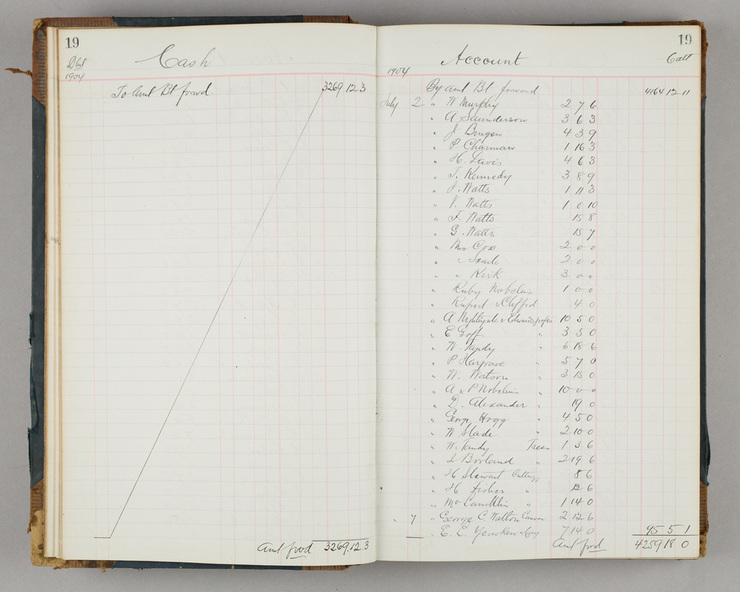 19
Cash
1904
To Amt Bt forwd 3269.12.3
Amt forwd 3269.12.3
19
Account
1904
By amt Bt forward 4164 12 11
July 2 " W Murphy 2 7 6
" A Saunderson 3 6 3
" J 4 3 9
" P Charman 1 16 3
" H. Davis 4 6 3
" J. Kennedy 3 8 9
" J. Watts 1 11 3
" V. Watts 1 0 10
" F. Watts 15 8
" G. Watts 15 7
" Mrs Cox 2 0 0
" " 2 0 0
" " Kirk 3 0 0
" Ruby 1 0 0
" Rupert & Clifford 4 0
" A Nightingale & 10 5 0
" E Goff " 3 5 0
" W. " 6 18 6
" P Hargrave " 5 7 0
" W. Watson " 3 15 0
" A & P " 10 0 0
" Alexander " 19 0
" George Hogg " 4 5 0
" W Slade " 2 10 0
" W. Trees 1 3 6
" Borland " 2 19 6
" H Stewart 8 6
" H Fisher " 12 6
" 1 14 0
" 7 " George C Walton 2 12 6
" E. E. 7 14 0 95 5 1
Amt forwd 4259 18 0